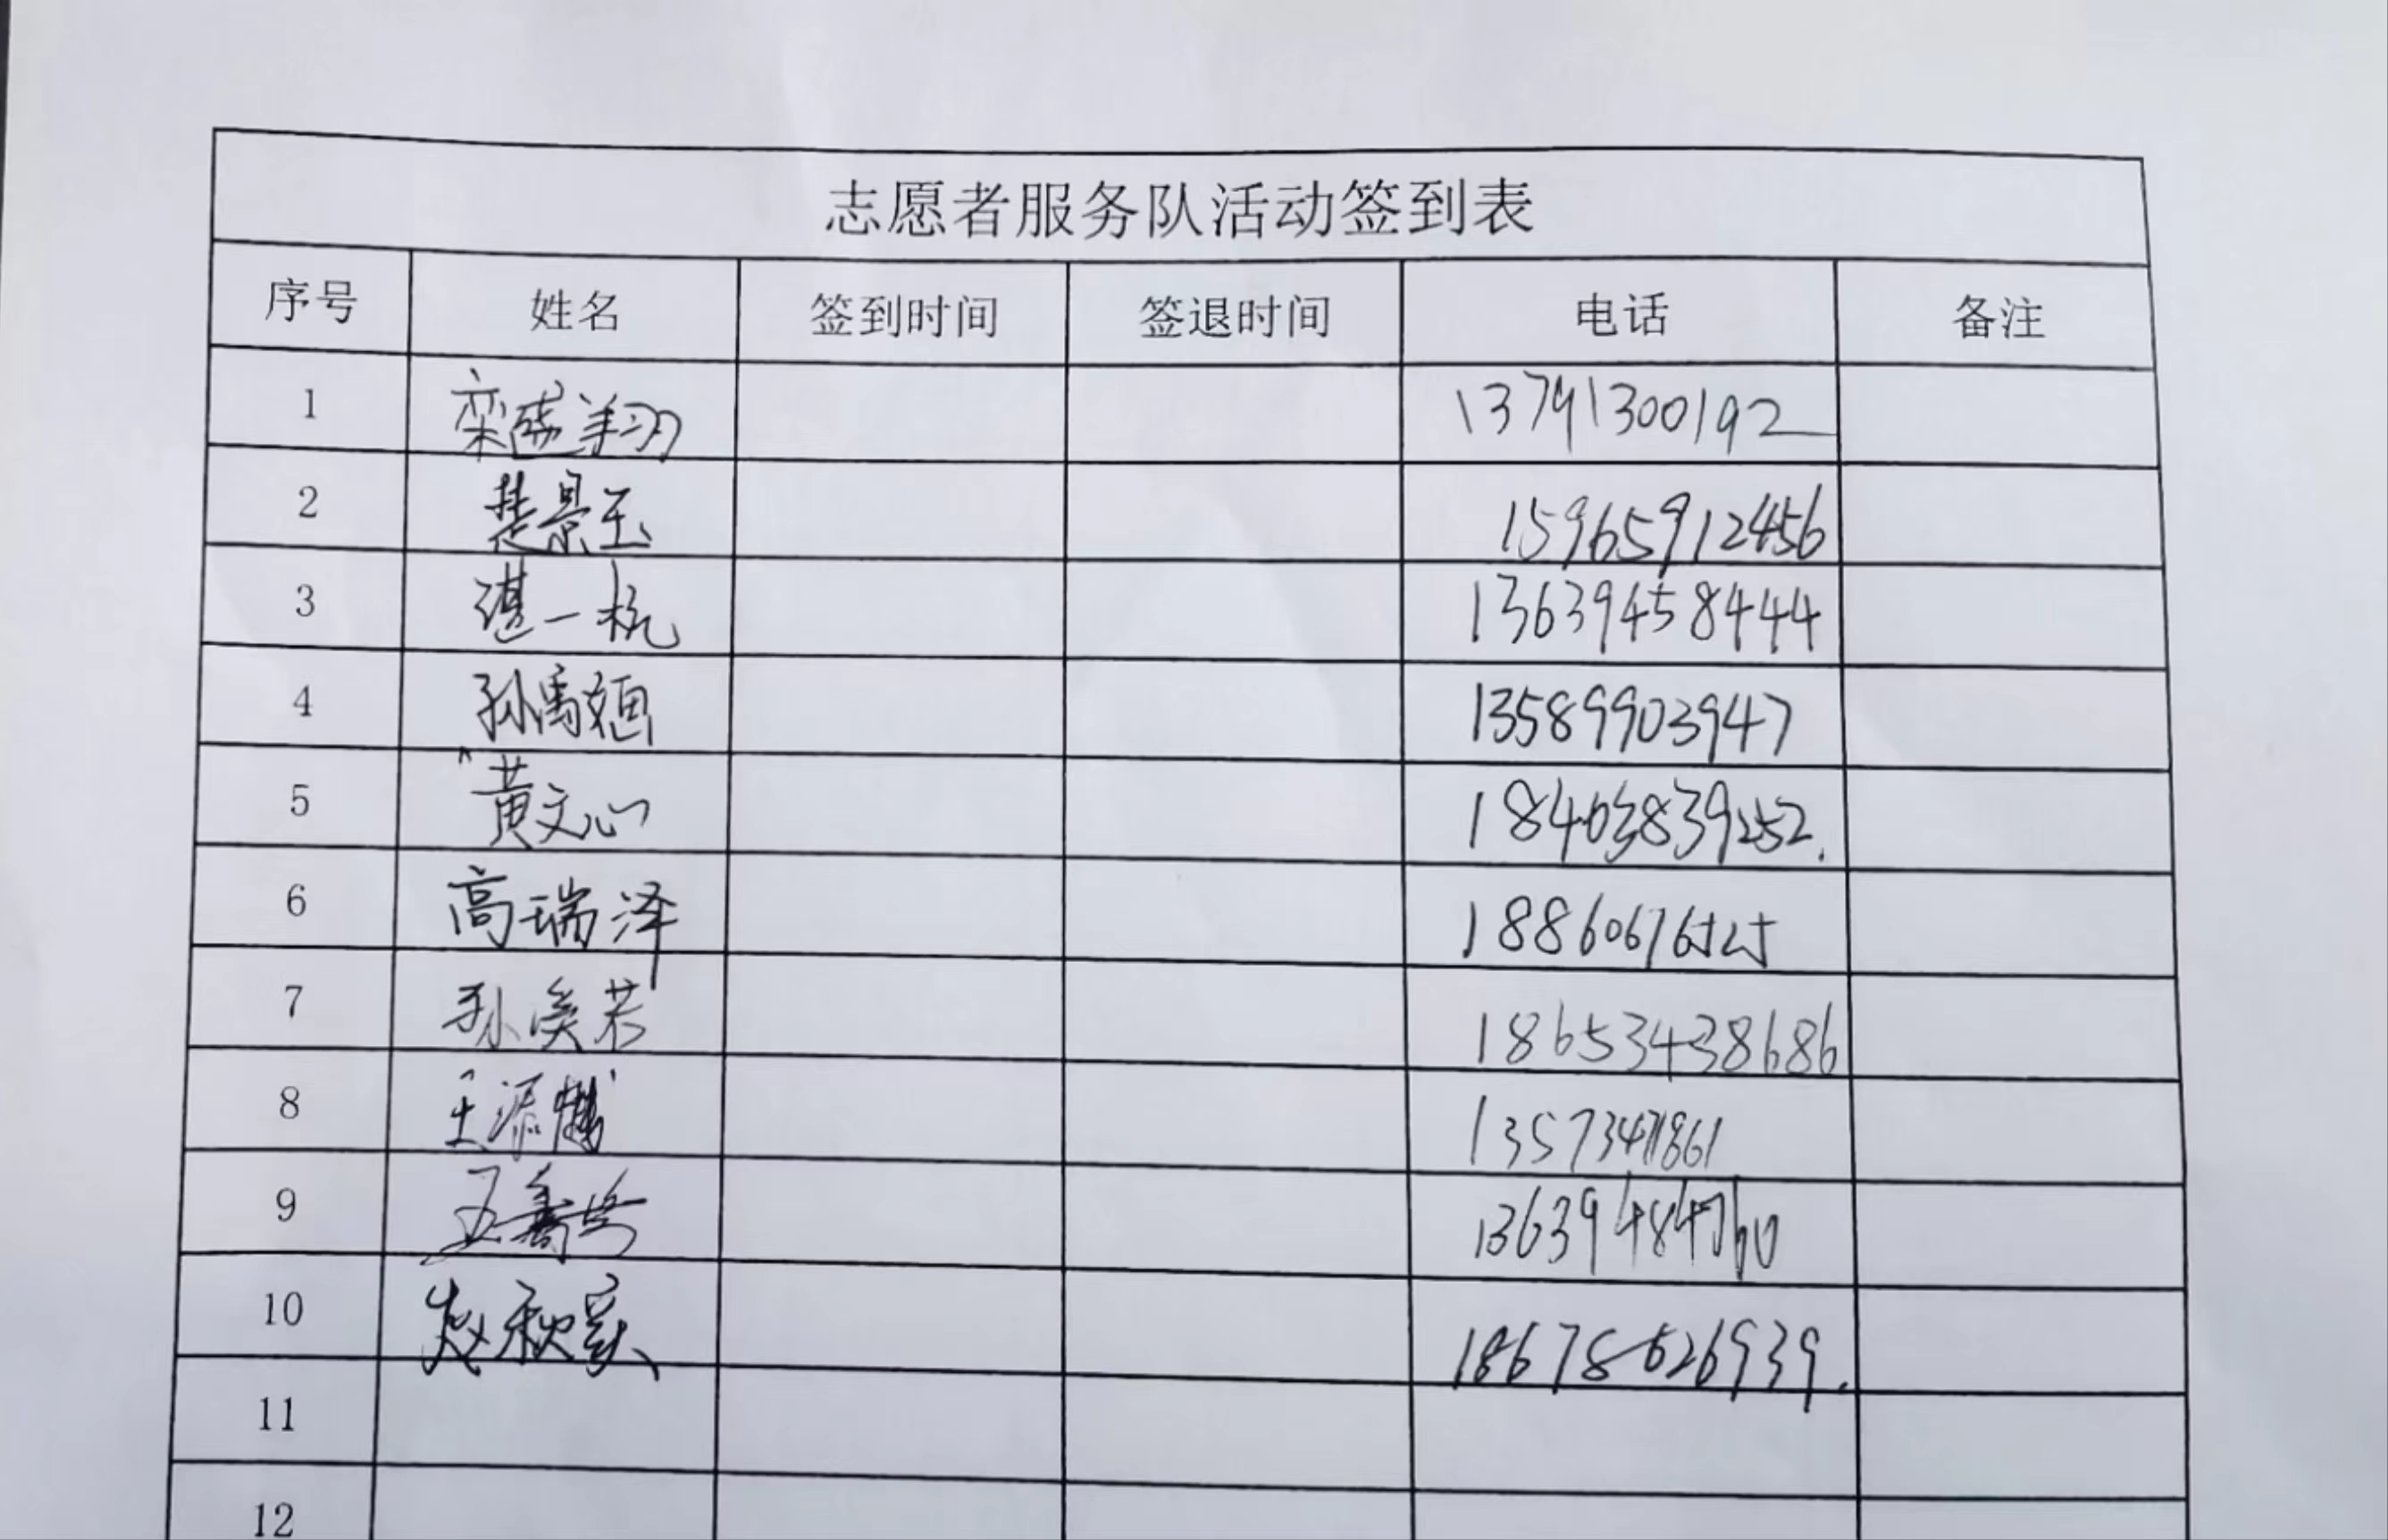 志愿者服务队活动签到表
序号 姓名 签到时间 签退时间 电话 备注
1 栾盛翔 13791300192
2 楚景玉 15965912456
3 谌一杭 13639458444
4 孙禹 13589903947
5 黄文心 18403839252.
6 高瑞泽 18860676525
7 孙奕若 18653438686
8 王添 13573471861
9 13639484760
10 赵秋实 18678626939.
11
12